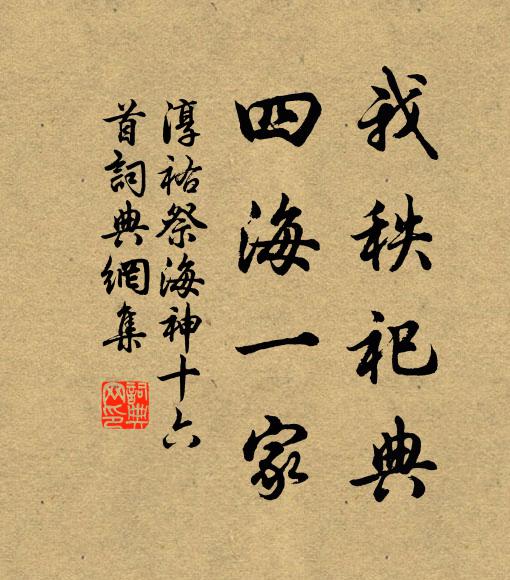 我秩祀典
四海一家
淳祐祭海神十六
首詞典網集
詞典
网印